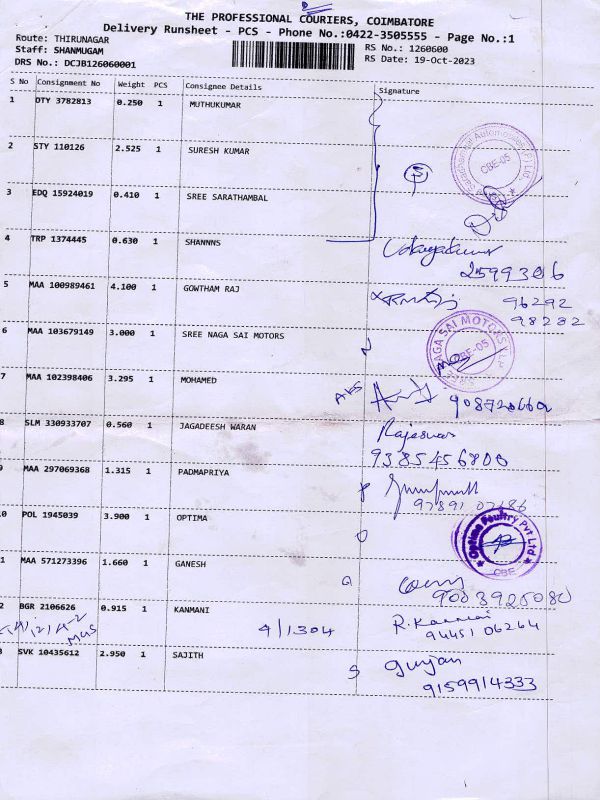 THE PROFESSIONAL COURIERS, COIMBATORE
Delivery Runsheet - PCS - Phone No.:0422-3505555 - Page No.:1
Route: THIRUNAGAR
RS No.: 1260600
Staff: SHANMUGAM
RS Date: 19-Oct-2023
DRS No.: DCJB126060001
S No Consignment No Weight PCS Consignee Details Signature
1 DTY 3782813 0.250 1 MUTHUKUMAR
2 STY 110126 2.525 1 SURESH KUMAR
CBE-05
3 EDQ 15924019 0.410 1 SREE SARATHAMBAL
4 TRP 1374445 0.630 1 SHANNNS
5 MAA 100989461 4.100 1 GOWTHAM RAJ
96292
98232
6 MAA 103679149 3.000 1 SREE NAGA SAI MOTORS
NAGA SAI MOTORS
CBE-05
7 MAA 102398406 3.295 1 MOHAMED
8 SLM 330933707 0.560 1 JAGADEESH WARAN
9385456800
9 MAA 297069368 1.315 1 PADMAPRIYA
0 POL 1945039 3.900 1 OPTIMA
Optima Poultry Pvt Ltd
CBE
1 MAA 571273396 1.660 1 GANESH
9003925080
2 BGR 2106626 0.915 1 KANMANI
9/1304
R. Kanmani
94451 06264
3 SVK 10435612 2.950 1 SAJITH
gunjan
9159914333